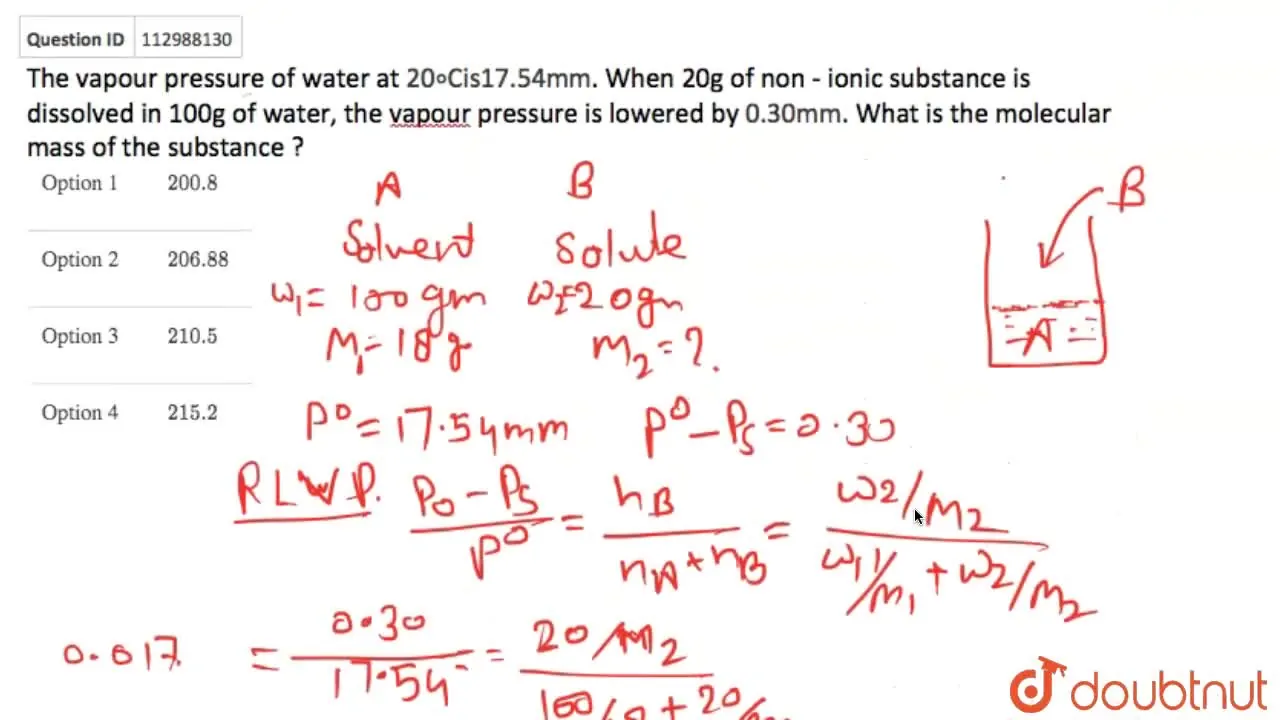 Question ID 112988130
The vapour pressure of water at 20∘Cis17.54mm. When 20g of non - ionic substance is
dissolved in 100g of water, the vapour pressure is lowered by 0.30mm. What is the molecular
mass of the substance ?
Option 1 200.8
Option 2 206.88
Option 3 210.5
Option 4 215.2
A B
Solvent Solute
W1 = 100 gm W2=20gm
M1 = 18 g M2 = ?.
B
A
P° = 17.54mm P° - Ps = 0.30
R L V P. Po - Ps / P° = nB / nA + nB = w2/M2 / w1/M1 + w2/M2
0.017 = 0.30 / 17.54 = 20/M2
doubtnut